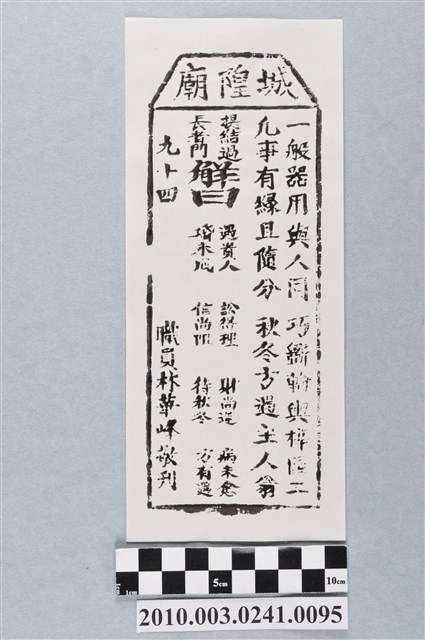 城隍廟
一般器用與人同 巧輪與梓匠工
凡事有緣且隨分 秋冬方遇主人翁
解曰
提結過 遇貴人 訟得理 財尚遲 病未愈
長者門 信尚阻 待秋冬 方有遇
九十四 職員林華峰敬刊
1cm 5cm 10cm
2010.003.0241.0095